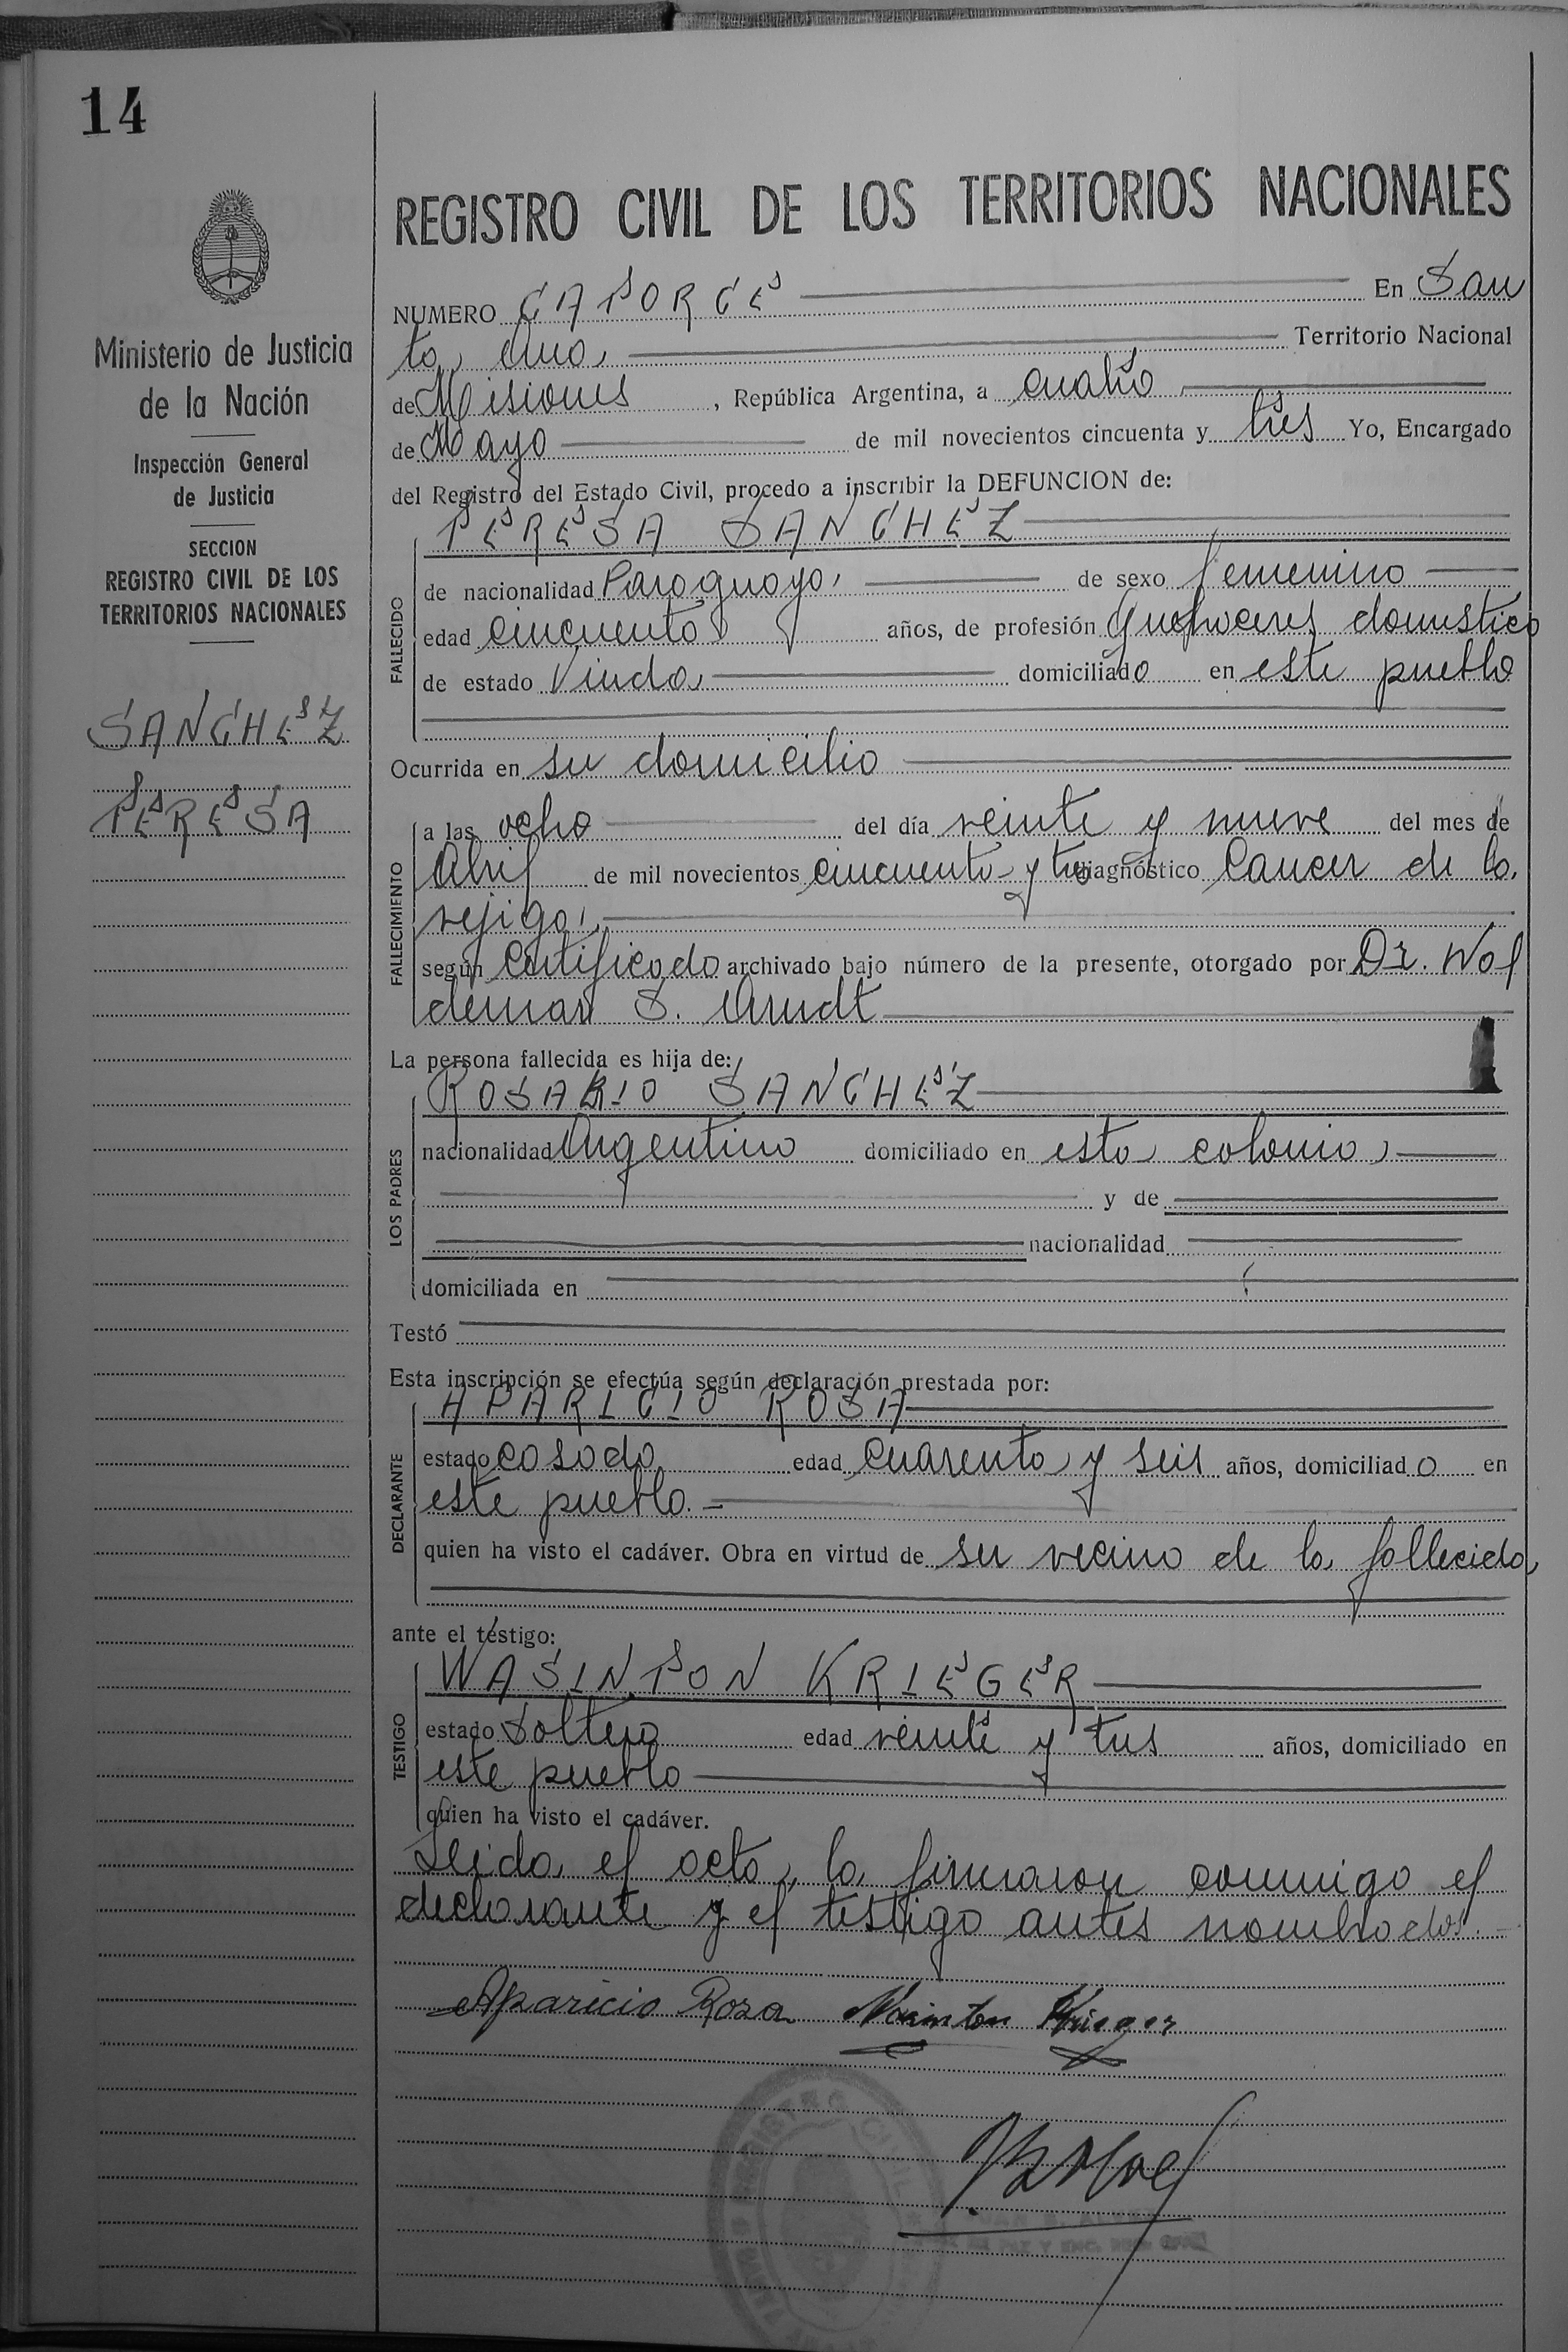 14
Ministerio de Justicia
de la Nación
Inspección General
de Justicia
SECCION
REGISTRO CIVIL DE LOS
TERRITORIOS NACIONALES
SANCHEZ
TERESA
REGISTRO CIVIL DE LOS TERRITORIOS NACIONALES
NUMERO CATORCE En San
ta Ana Territorio Nacional
de Misiones, República Argentina, a cuatro
de Mayo de mil novecientos cincuenta y tres Yo, Encargado
del Registro del Estado Civil, procedo a inscribir la DEFUNCION de:
TERESA SANCHEZ
FALLECIDO
de nacionalidad Paraguaya de sexo femenino
edad cincuenta años, de profesión quehaceres domestico
de estado Viuda domiciliado en este pueblo
Ocurrida en su domicilio
FALLECIMIENTO
a las ocho del día veinte y nueve del mes de
Abril de mil novecientos cincuenta y tres diagnóstico Cancer de la
vejiga
según Certificado archivado bajo número de la presente, otorgado por Dr. Wol
demar S. Arndt
La persona fallecida es hija de:
ROSARIO SANCHEZ
LOS PADRES
nacionalidad Argentino domiciliado en esta colonia
y de
nacionalidad
domiciliada en
Testó
Esta inscripción se efectúa según declaración prestada por:
APARICIO ROSA
DECLARANTE
estado casado edad cuarenta y seis años, domiciliado en
este pueblo.
quien ha visto el cadáver. Obra en virtud de ser vecino de la fallecida
ante el testigo:
WASINTON KRIEGER
TESTIGO
estado Soltero edad veinte y tres años, domiciliado en
este pueblo
quien ha visto el cadáver.
Leida el acta, la firmaron conmigo el
declarante y el testigo antes nombrados.
Aparicio Rosa Wasinton Krieger
REGISTRO CIVIL